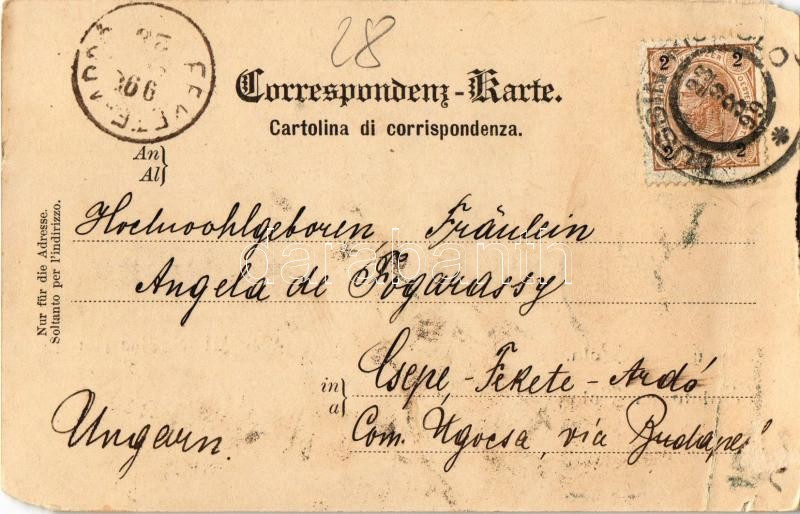 28
FEKETE-ARDÓ
99
2 2
2
LUSSIN
99
Correspondenz-Karte.
Cartolina di corrispondenza.
An
Al
Nur für die Adresse.
Soltanto per l'indirizzo.
Hochwohlgeboren Fräulein
darabanth
Angela de Fogarassy
in
a
Csepe - Fekete - Ardó
Ungarn.
Com. Ugocsa, via Budapest